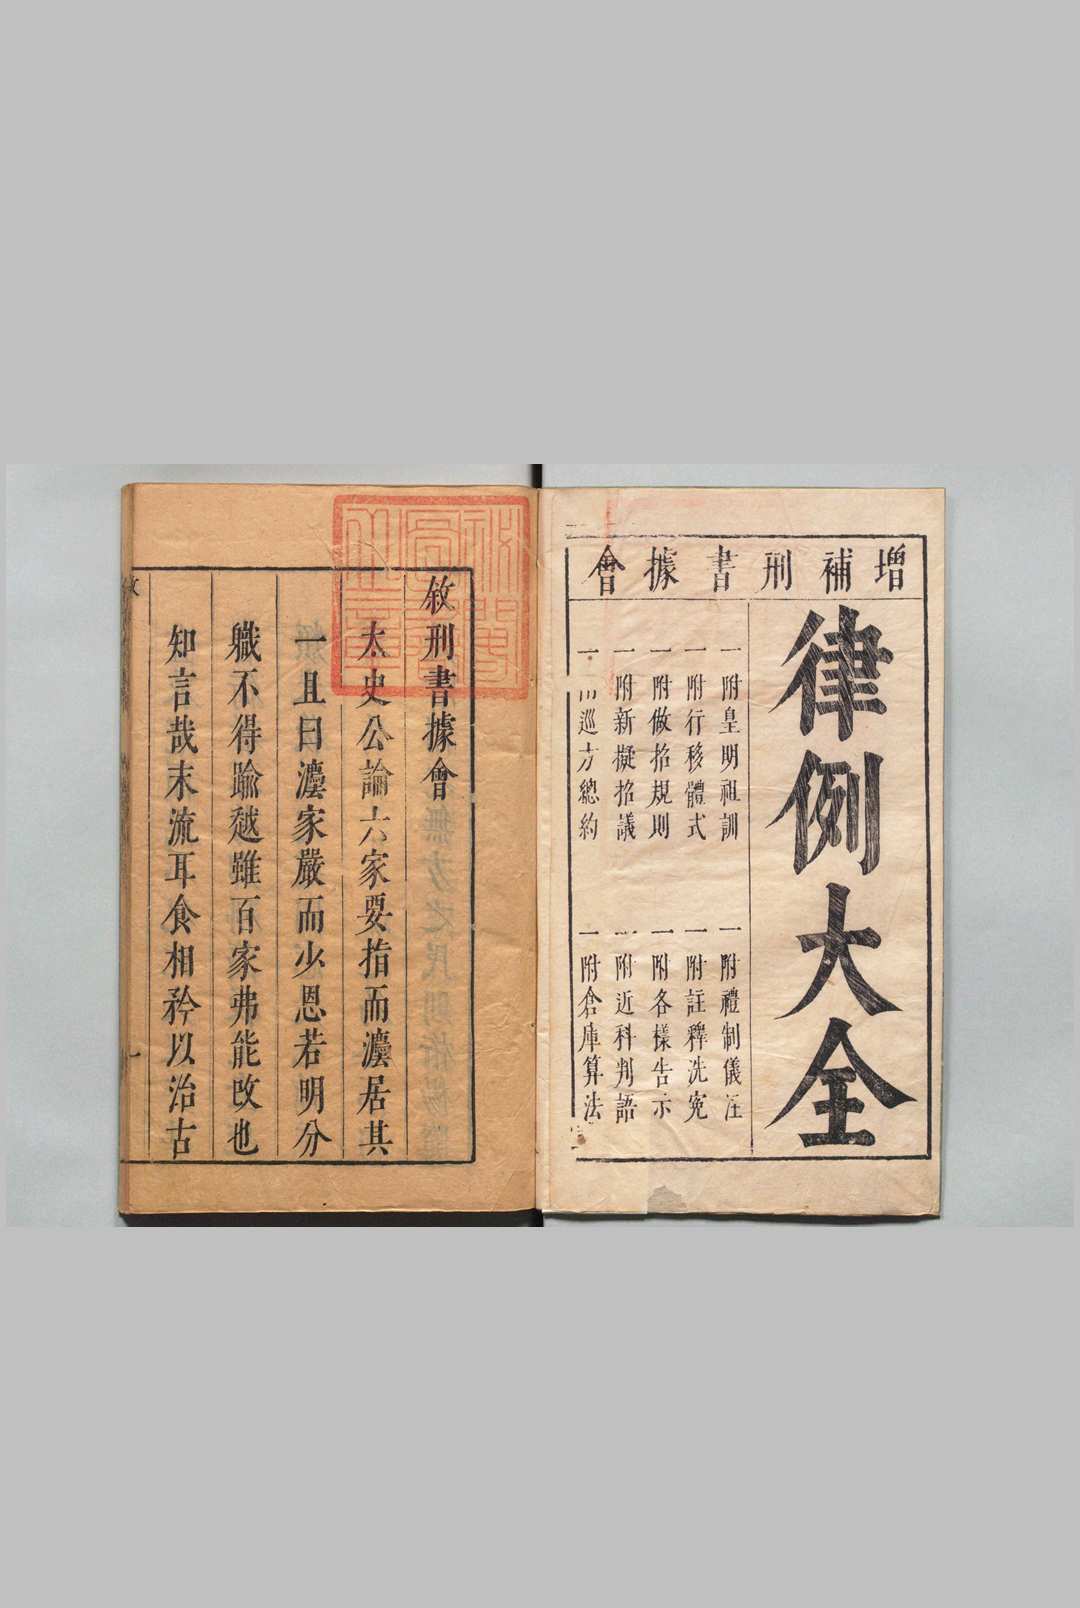 增補刑書據會
律例大全
一附皇明祖訓
一附禮制儀注
一附行移體式
一附註釋洗冤
一附做招規則
一附各樣告示
一附新擬招議
一附近科判語
一附巡方總約
一附倉庫算法
敘刑書據會
太史公論六家要指而灋居其
一且曰灋家嚴而少恩若明分
職不得踰越雖百家弗能改也
知言哉末流耳食相矜以治古
敘
一